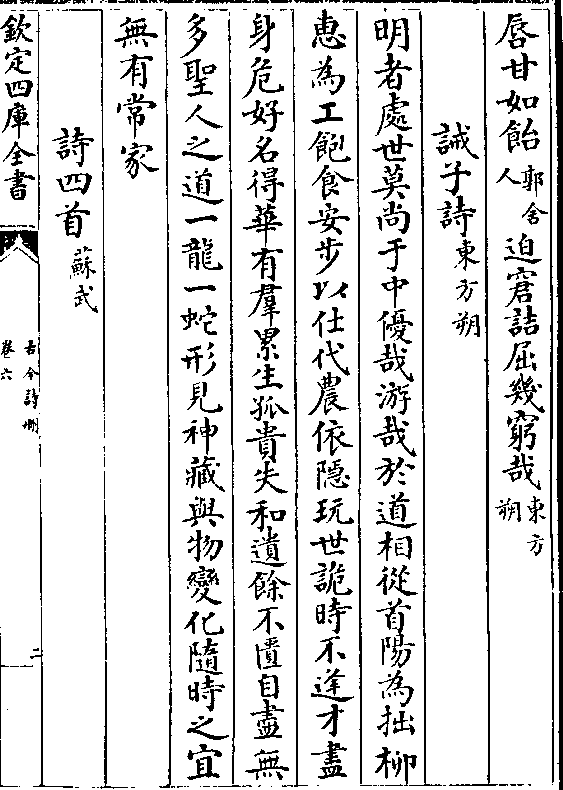 唇甘如飴郭舍人迫窘詰屈幾窮哉東方朔
誡子詩東方朔
明者處世莫尚于中優哉游哉於道相從首陽為拙柳
惠為工飽食安步以仕代農依隱玩世詭時不逢才盡
身危好名得華有羣累生孤貴失和遺餘不匱自盡無
多聖人之道一龍一蛇形見神藏與物變化隨時之宜
無有常家
詩四首蘇武
欽定四庫全書
古今詩刪
卷六
二